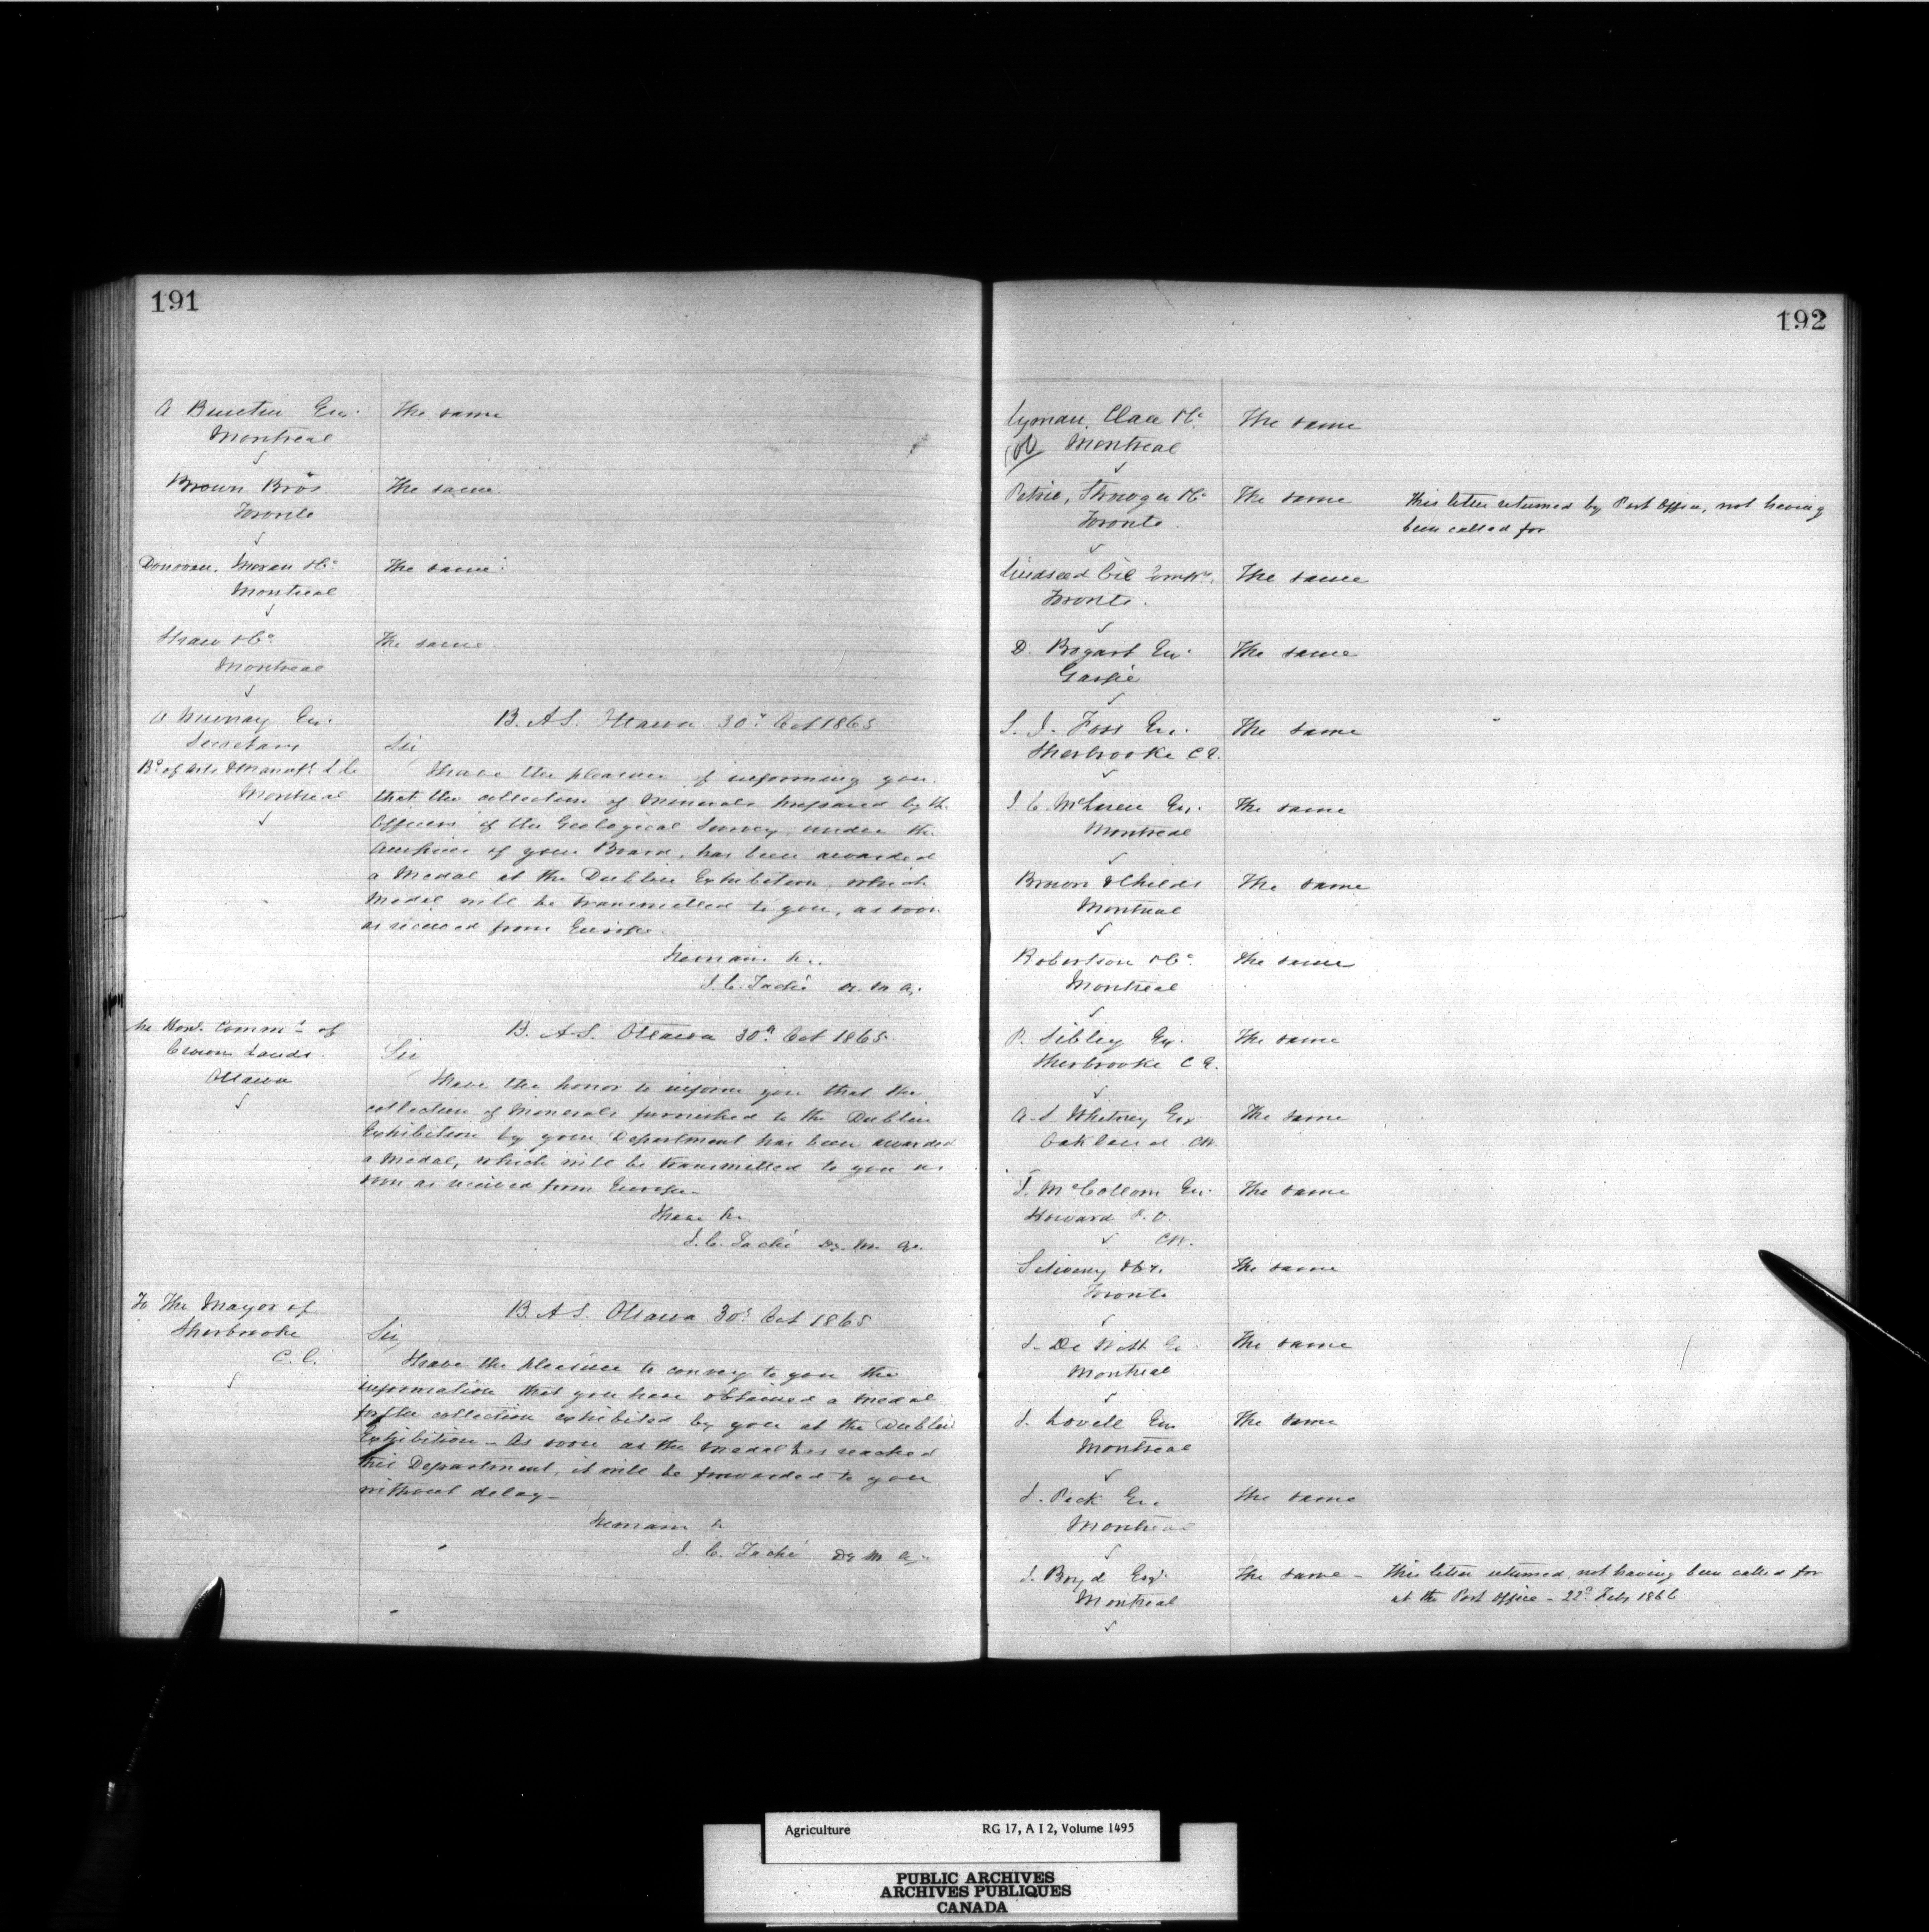 191
A Buntin Esq.
Montreal
The same
Brown Bros
Toronto
The same
Donovan, Moran & Co
Montreal
The same
Shaw & Co
Montreal
The same
A Murray Esq.
Secretary
Bd of Arts & Manufs L C
Montreal
B. A S. Ottawa 30th Oct 1865
Sir
I have the pleasure of informing you
that the collection of Minerals prepared by the
Officers of the Geological Survey under the
Auspices of your Board, has been awarded
a Medal at the Dublin Exhibition, which
Medal will be transmitted to you, as soon
as received from Europe.
I remain &c.
J. C. Taché D. M. A.
The Hon. Commr of
Crown Lands
Ottawa
B. A-S. Ottawa 30th Oct 1865
Sir
I have the honor to inform you that the
collection of Minerals furnished to the Dublin
Exhibition by your Department has been awarded
a Medal, which will be transmitted to you as
soon as received from Europe.
I have &c
J. C. Taché Dy. M. A.
To The Mayor of
Sherbrooke
C. E.
B. A S. Ottawa 30th Oct 1865
Sir
I have the pleasure to convey to you the
information that you have obtained a medal
for the collection exhibited by you at the Dublin
Exhibition - As soon as the Medal has reached
this Department, it will be forwarded to you
without delay -
I remain &c
J. C. Taché Dy M A.
192
Lyman, Clare & Co
Montreal
The same
Petrie, & Co
Toronto
The same
This letter returned by Post Office, not having
been called for
Lindseed Oil
Toronto.
The same
D. Bogart Esq.
Gaspé
The same
S. J. Foss Esq.
Sherbrooke C E.
The same
J. C. McLaren Esq.
Montreal
The same
Brown & Childs
Montreal
The same
Robertson & Co
Montreal
The same
P. Sibley Esq.
Sherbrooke C E.
The same
A. S. Whitney Esq
Oakland CW.
The same
T. McCollom Esq.
Howard P. O.
CW.
The same
& Co.
Toronto
The same
J. De Witt Es
Montreal
The same
J. Lovell Esq
Montreal
The same
J. Peck Es.
Montreal
The same
J. Boyd Esqr.
Montreal
The same - This letter returned, not having been called for
at the Post Office - 22d Feby 1866
Agriculture RG 17, A I 2, Volume 1495
PUBLIC ARCHIVES
ARCHIVES PUBLIQUES
CANADA